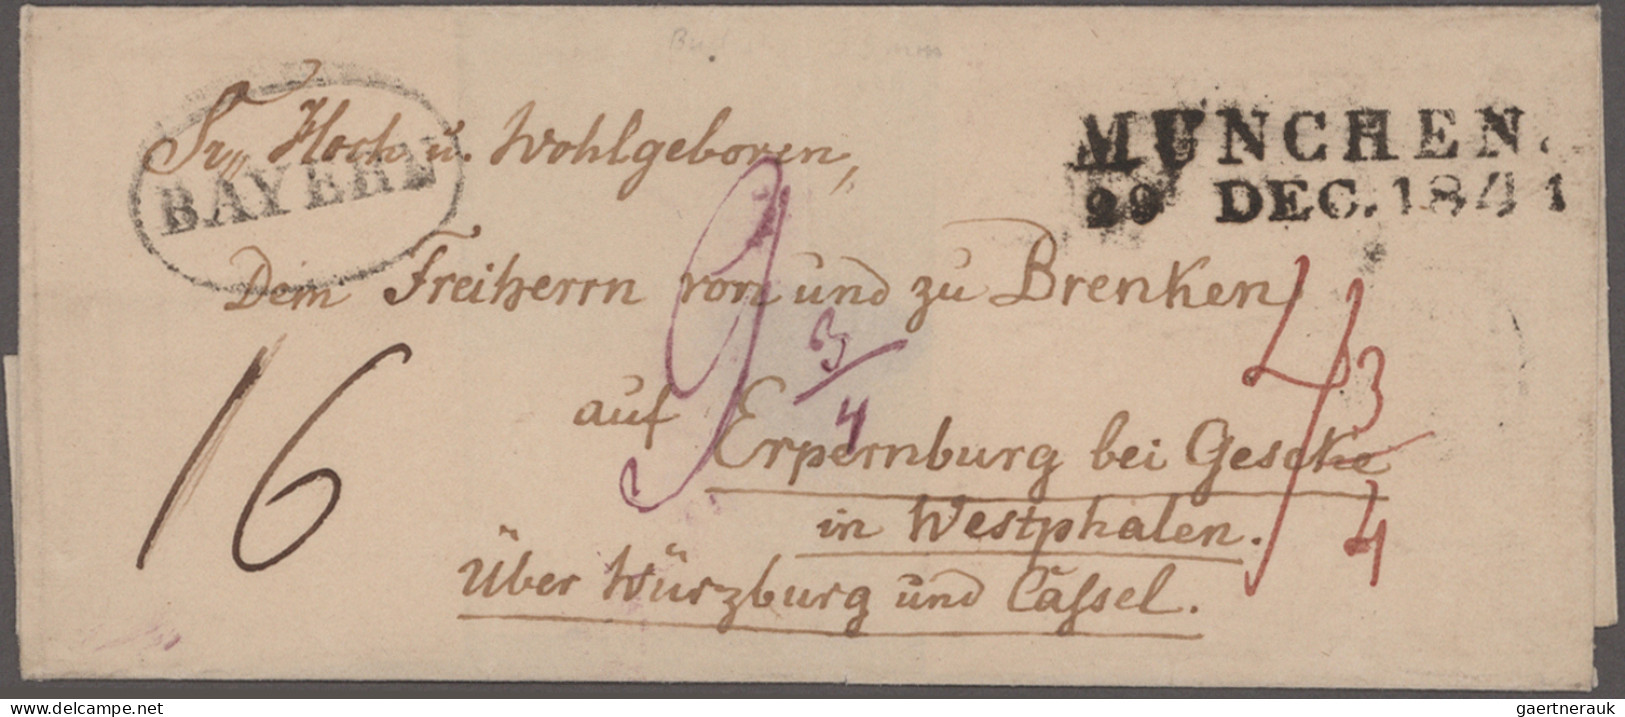 Sr. Hoch u. Wohlgeboren,
BAYERN
MÜNCHEN.
29 DEC. 1841
Dem Freiherrn von und zu Brenken
9 3/4
4 3/4
auf Erpernburg bei Geseke
in Westphalen.
Über Würzburg und Cassel.
16
delcampe.net
gaertnerauk